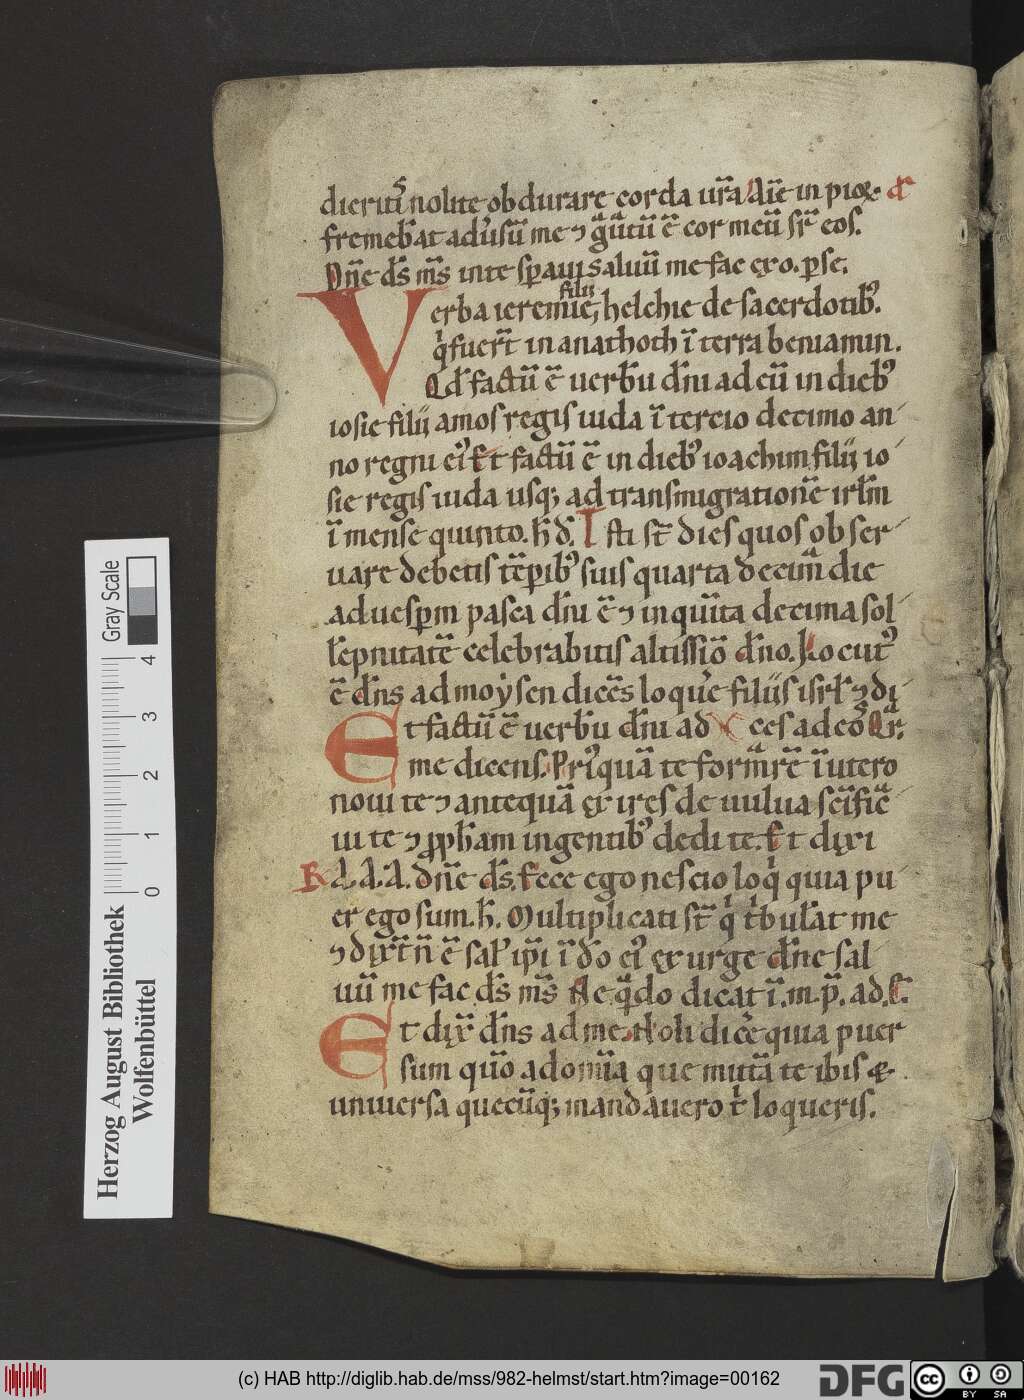 dieritis nolite obdurare corda ur̄a Aūe in pio
fremebāt adūsū me ⁊ cor meū
Dn̄e ds̄ ms̄ in te spaui saluū me fac exo. pse.
filii
Verba ieremie helchie de sacerdotib᷒.
qͥ fuer̄t in anathoth ī terra beniamin.
Qd̄ factū ē uerbū dn̄i ad eū in dieb᷒
iosie filii amos regis iuda ī tercio decimo an
no regni ei᷒ Et factū ē in dieb᷒ ioachim filii io
sie regis iuda usq; ad transmigrationē irl̄m
ī mense quinto. h̄ d̄. Isti st̄ dies quos obser
uare debetis tēporib᷒ suis quarta decima die
ad uesperm pasca dn̄i ē ⁊ in quīta decima sol
lepnitatē celebrabitis altissio dn̄o. Locut᷒
ē dn̄s ad moysen dicēs loquere filiis isrl̄ ⁊ di
Et factū ē uerbū dn̄i ad ces ad eos
me dicens. Pri᷒quā te formarē ī utero
noui te ⁊ antequā exires de uulua sc̄ifica
ui te ⁊ pph̄am in gentib᷒ dedi te. Et dixi
R A. A. A. dn̄e ds̄. Ecce ego nescio loqͥ quia pu
er ego sum. h̄. Multiplicati st̄ qͥ tͥbulāt me
⁊ dixer̄t n̄ ē sal᷒ ipi ī do ei᷒ exurge dn̄e sal
uū me fac ds̄ ms̄ Ne qn̄do dicat ī. m. p. ad.
Et dix̄ dn̄s ad me. Noli dicere quia puer
sum quō ad omia que mittā te ibis &
uniuersa quecūq; mandauero tͥ loqueris.
Gray Scale
4
3
2
1
0
Herzog August Bibliothek
Wolfenbüttel
(c) HAB http://diglib.hab.de/mss/982-helmst/start.htm?image=00162
DFG
cc
BY SA